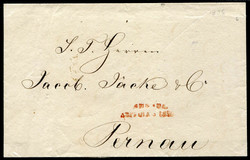 S. T. Herren
Jacob Jacke & Co
Pernau